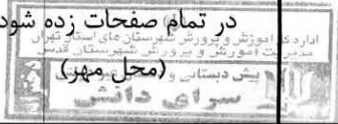 در تمام صفحات زده شود
اداره کل آموزش و پرورش شهرستان های استان تهران
مدیریت آموزش و پرورش شهرستان قدس
(محل مهر)
پیش دبستانی و
سرای دانش